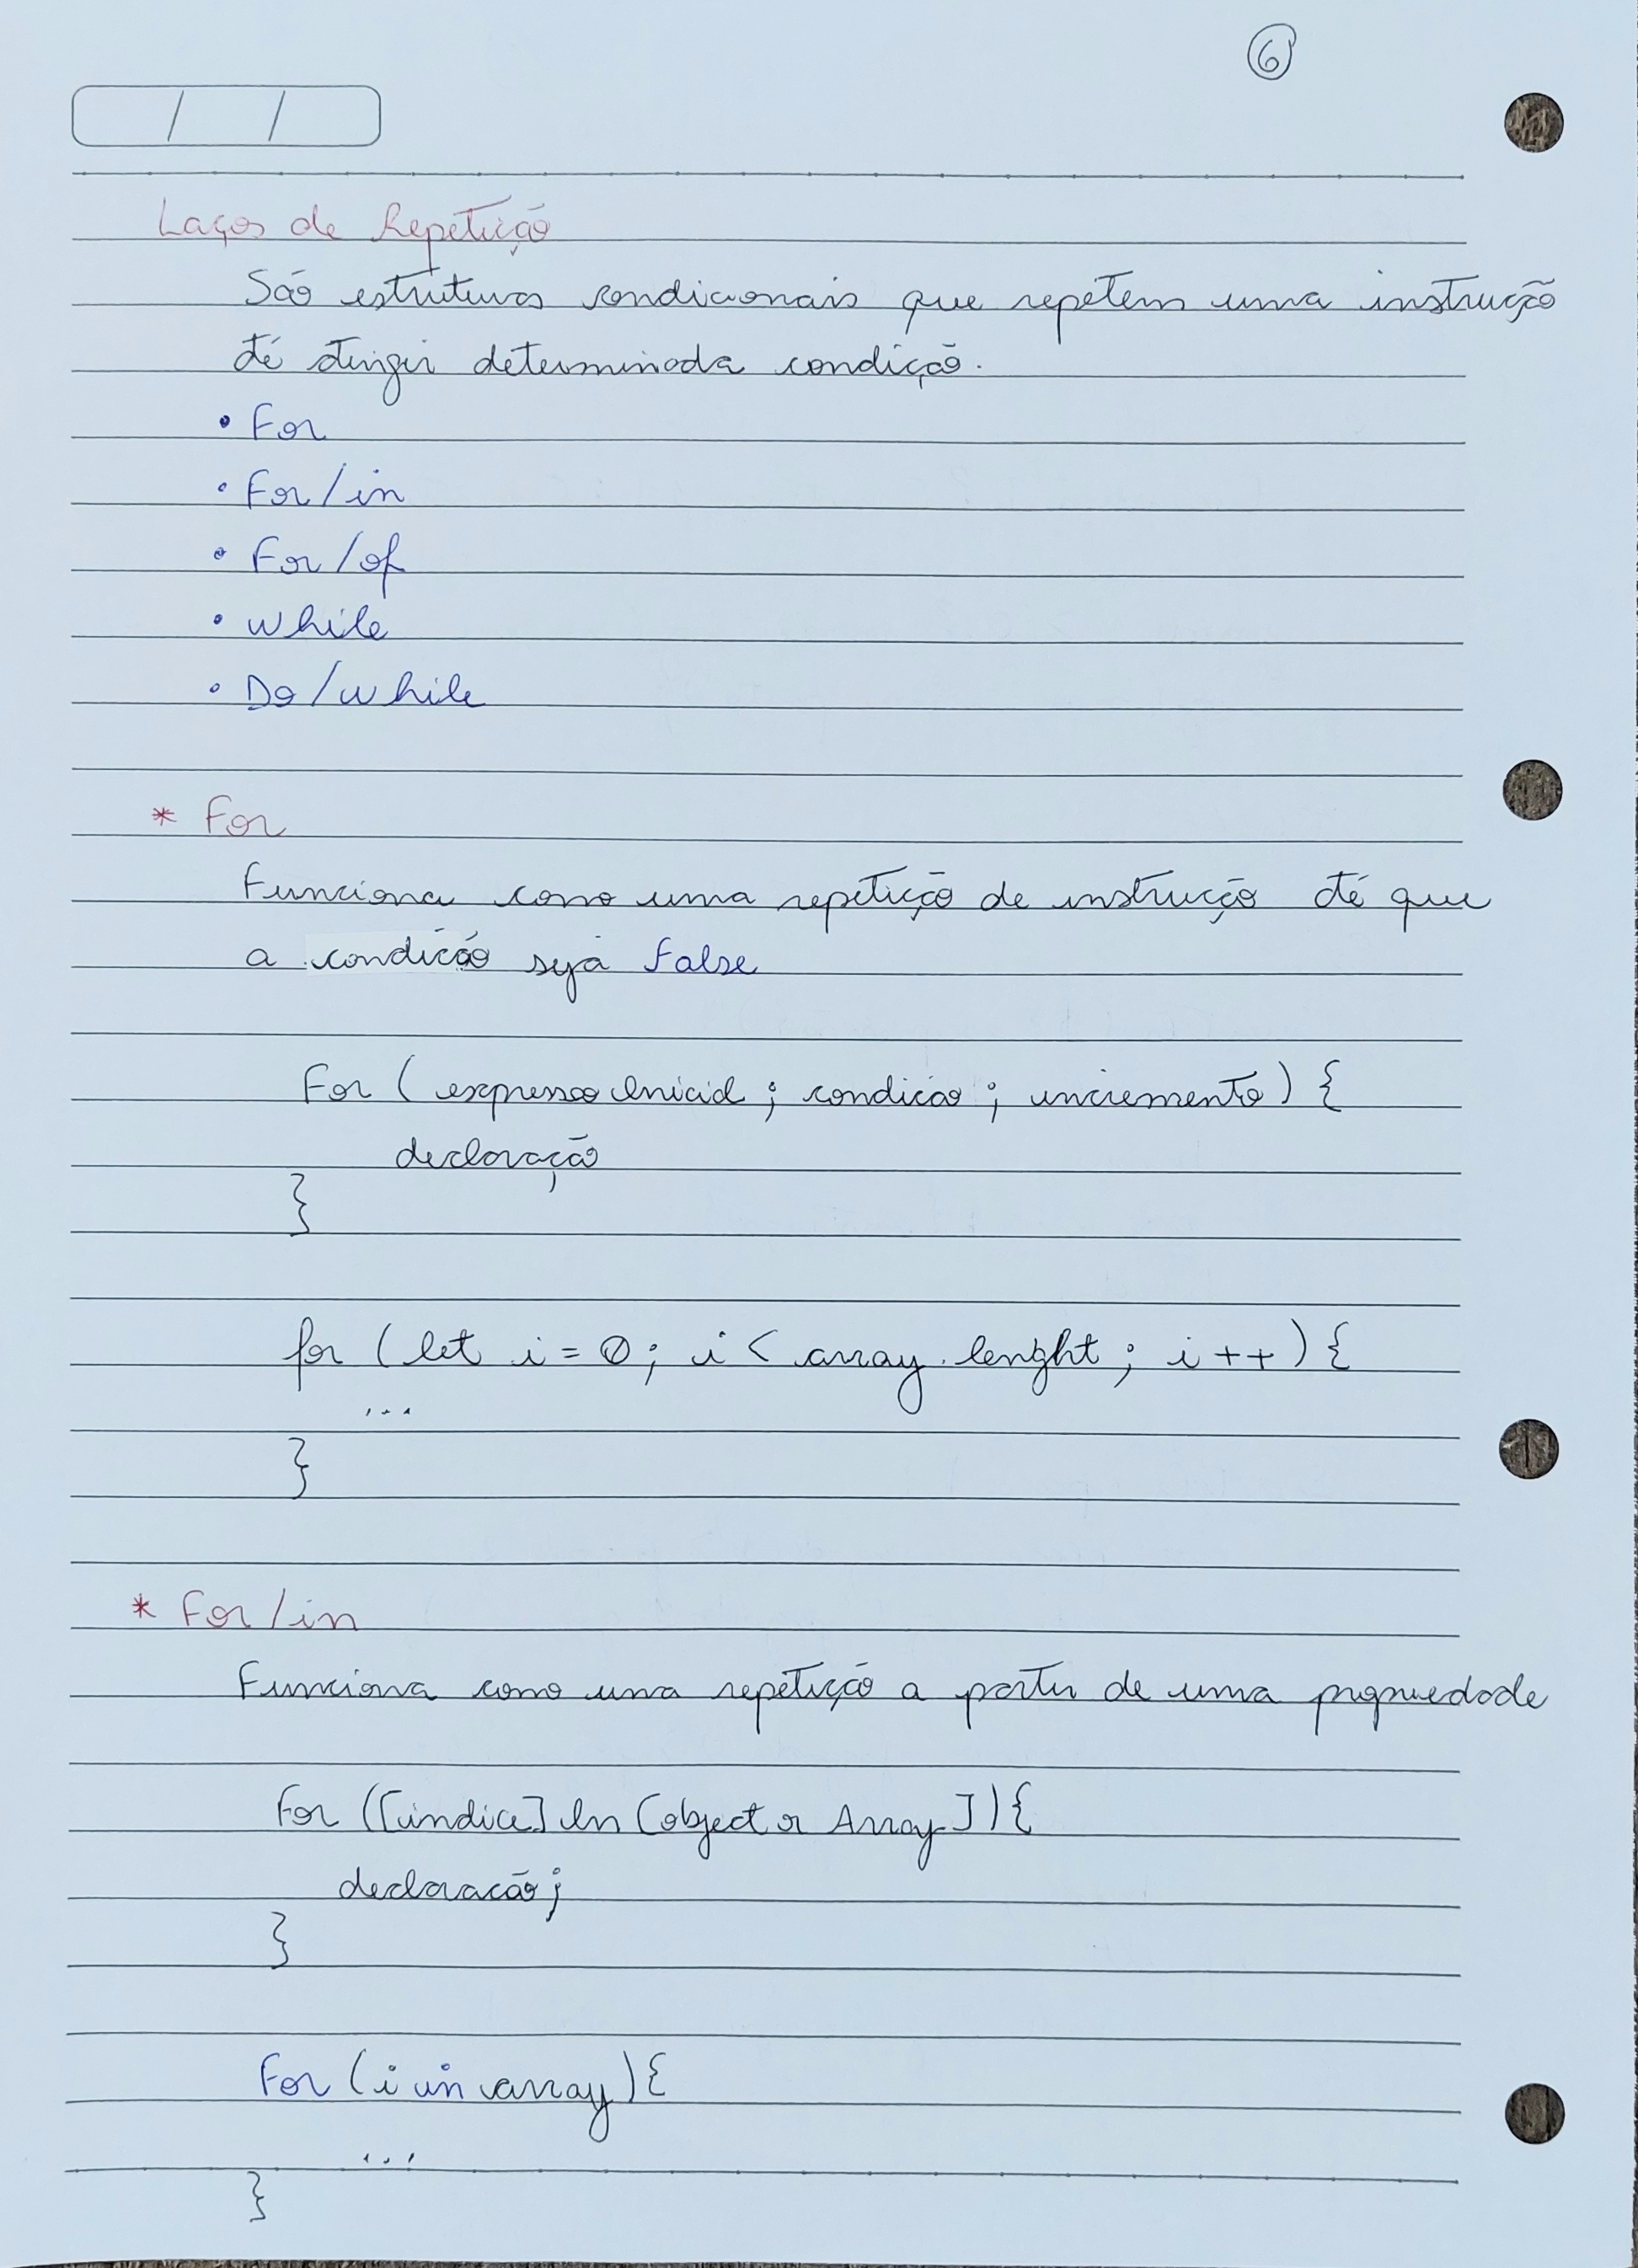 6
/ /
Laços de Repetição
São estruturas condicionais que repetem uma instrução
até atingir determinada condição.
• For
• For/in
• For/of
• While
• Do/while
* For
Funciona como uma repetição de instrução até que
a condição seja False
For (expressaoInicial ; condicao ; incremento) {
declaração
}
for (let i = 0 ; i < array.lenght ; i ++) {
...
}
* For/in
Funciona como uma repetição a partir de uma propriedade
For ([indice] In [object or Array]) {
declaracão;
}
For (i in array) {
...
}